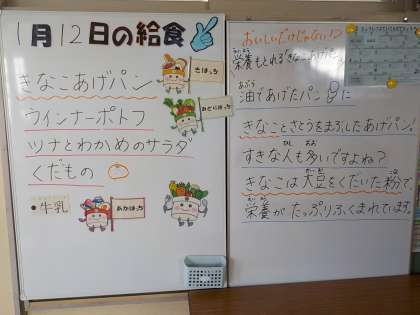 1月12日の給食
きなこあげパン
ウインナーポトフ
ツナとわかめのサラダ
くだもの
・牛乳
きはっち
みどりはっち
あかはっち
おいしいだけじゃない!?
栄養もとれる「きなこあげパン」
油であげたパンに
きなことさとうをまぶしたあげパン!
すきな人も多いですよね?
きなこは大豆をくだいた粉で
栄養がたっぷりふくまれています。